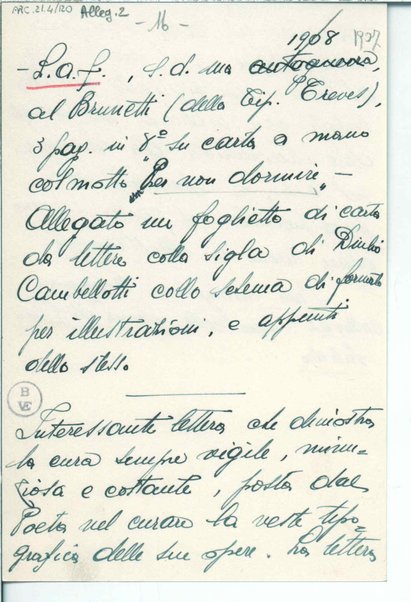 ARC.21.4/20 Alleg. 2
- 16 -
1908 1907
- L. a. f., s. d. ma
al Brunetti (della Tip. Treves),
3 pag. in 8° su carta a mano
col motto "Per non dormire" -
Allegato un foglietto di carta
da lettere colla sigla di Duilio
Cambellotti collo schema di formato
per illustrazioni, e appunti
dello stesso
B
VE
Interessante lettera che dimostra
la cura sempre vigile, minu-
ziosa e costante, posta dal
Poeta nel curare la veste tipo-
grafica delle sue opere. La lettera